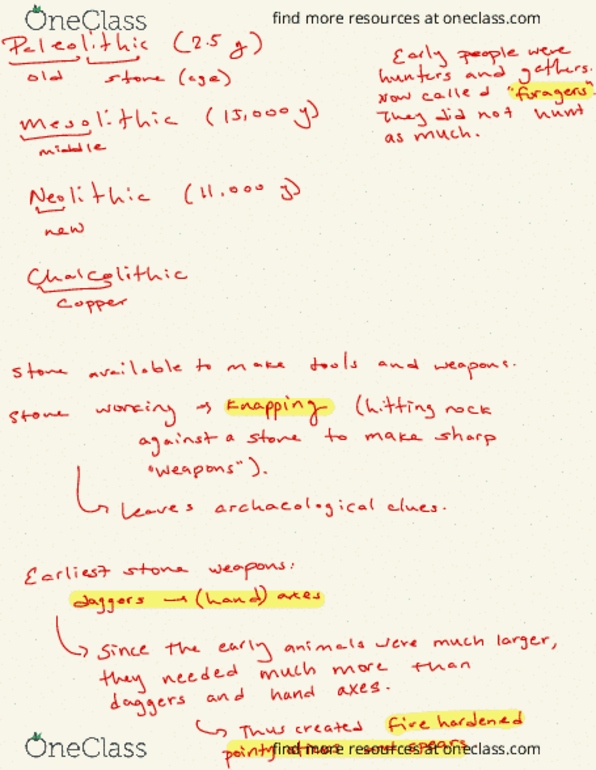 OneClass
find more resources at oneclass.com
Paleolithic (2.5 y)
old stone (age)
Early people were
hunters and gathers.
Now called "foragers".
They did not hunt
as much.
Mesolithic (15,000 y)
middle
Neolithic (11.000 y)
new
Chalcolithic
copper
Stone available to make tools and weapons.
Stone working → knapping (hitting rock
against a stone to make sharp
"weapons").
Leaves archaeological clues.
Earliest stone weapons:
daggers → (hand) axes
Since the early animals were much larger,
they needed much more than
daggers and hand axes.
Thus created fire hardened
pointy spears
OneClass
find more resources at oneclass.com